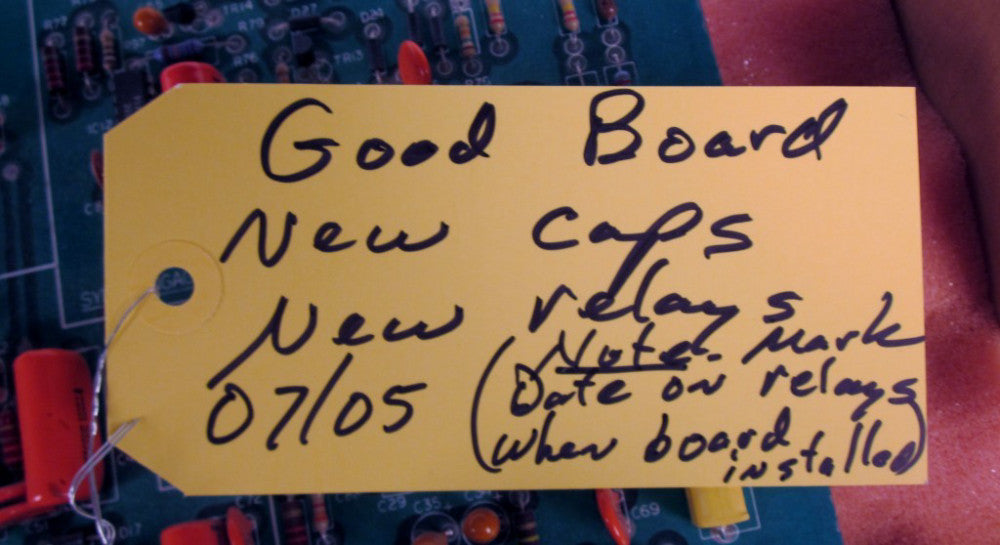 Good Board
New caps
New relays
07/05
(Note- Mark
Date on relays
when board
installed)
R79
TR14
R76
D27
TR13
C29
C35
C69
D17